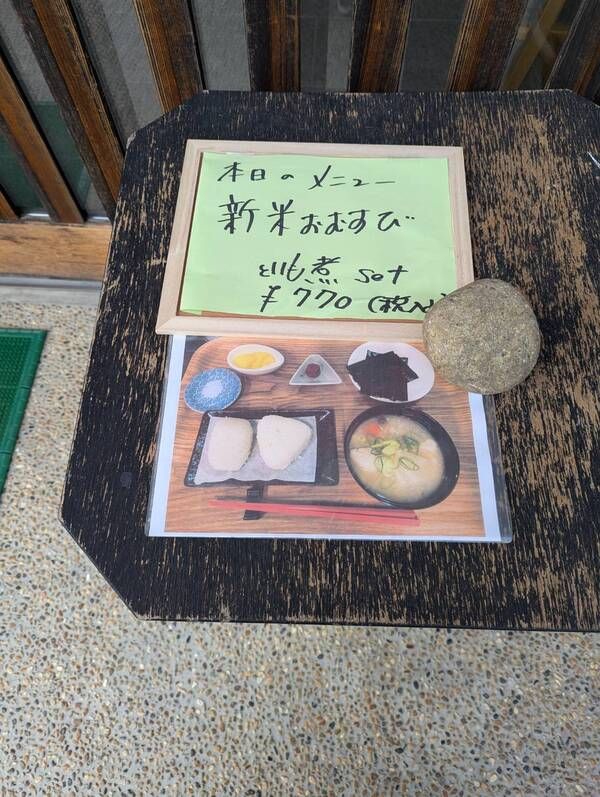 本日のメニュー
新米おむすび
といも煮 set
¥770(税込)